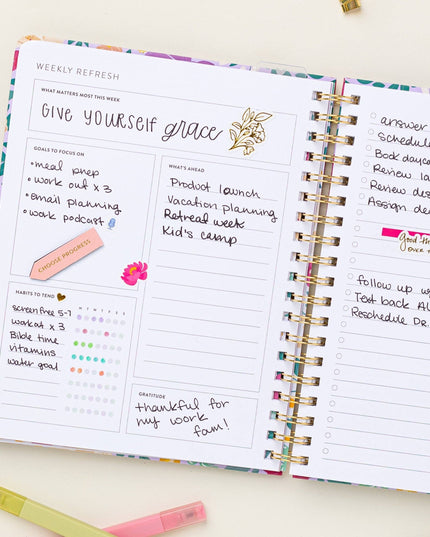 WEEKLY REFRESH
WHAT MATTERS MOST THIS WEEK
GIVE YOURSELF grace
GOALS TO FOCUS ON
•meal prep
•work out x 3
•email planning
•work podcast
CHOOSE PROGRESS
HABITS TO TEND
M T W T F S S
screen free 5-7
workout x 3
Bible time
vitamins
water goal
WHAT'S AHEAD
Product launch
Vacation planning
Retreat week
Kid's camp
GRATITUDE
thankful for
my work
fam!
answer
Schedule
Book dayc
Review la
Review des
Assign de
OVER
follow up w
Text back Al
Reschedule DR.